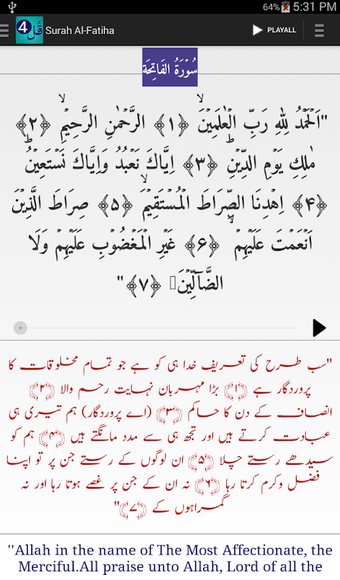 64% 5:31 PM
4 قُل Surah Al-Fatiha PLAYALL
سُوْرَةُ الفَاتِحَة
"اَلْحَمْدُ لِلّٰهِ رَبِّ الْعٰلَمِيْنَۙ ﴿۱﴾ الرَّحْمٰنِ الرَّحِيْمِۙ ﴿۲﴾
مٰلِكِ يَوْمِ الدِّيْنِؕ ﴿۳﴾ اِيَّاكَ نَعْبُدُ وَاِيَّاكَ نَسْتَعِيْنُؕ
﴿۴﴾ اِهْدِنَا الصِّرَاطَ الْمُسْتَقِيْمَۙ ﴿۵﴾ صِرَاطَ الَّذِيْنَ
اَنْعَمْتَ عَلَيْهِمْ ۙ ﴿۶﴾ غَيْرِ الْمَغْضُوْبِ عَلَيْهِمْ وَلَا
الضَّآلِّيْنَ ﴿۷﴾"
"سب طرح کی تعریف خدا ہی کو ہے جو تمام مخلوقات کا
پروردگار ہے ﴿۱﴾ بڑا مہربان نہایت رحم والا ﴿۲﴾
انصاف کے دن کا حاکم ﴿۳﴾ (اے پروردگار) ہم تیری ہی
عبادت کرتے ہیں اور تجھ ہی سے مدد مانگتے ہیں ﴿۴﴾ ہم کو
سیدھے رستے چلا ﴿۵﴾ ان لوگوں کے رستے جن پر تو اپنا
فضل وکرم کرتا رہا ﴿۶﴾ نہ ان کے جن پر غصے ہوتا رہا اور نہ
گمراہوں کے ﴿۷﴾"
"Allah in the name of The Most Affectionate, the
Merciful.All praise unto Allah, Lord of all the